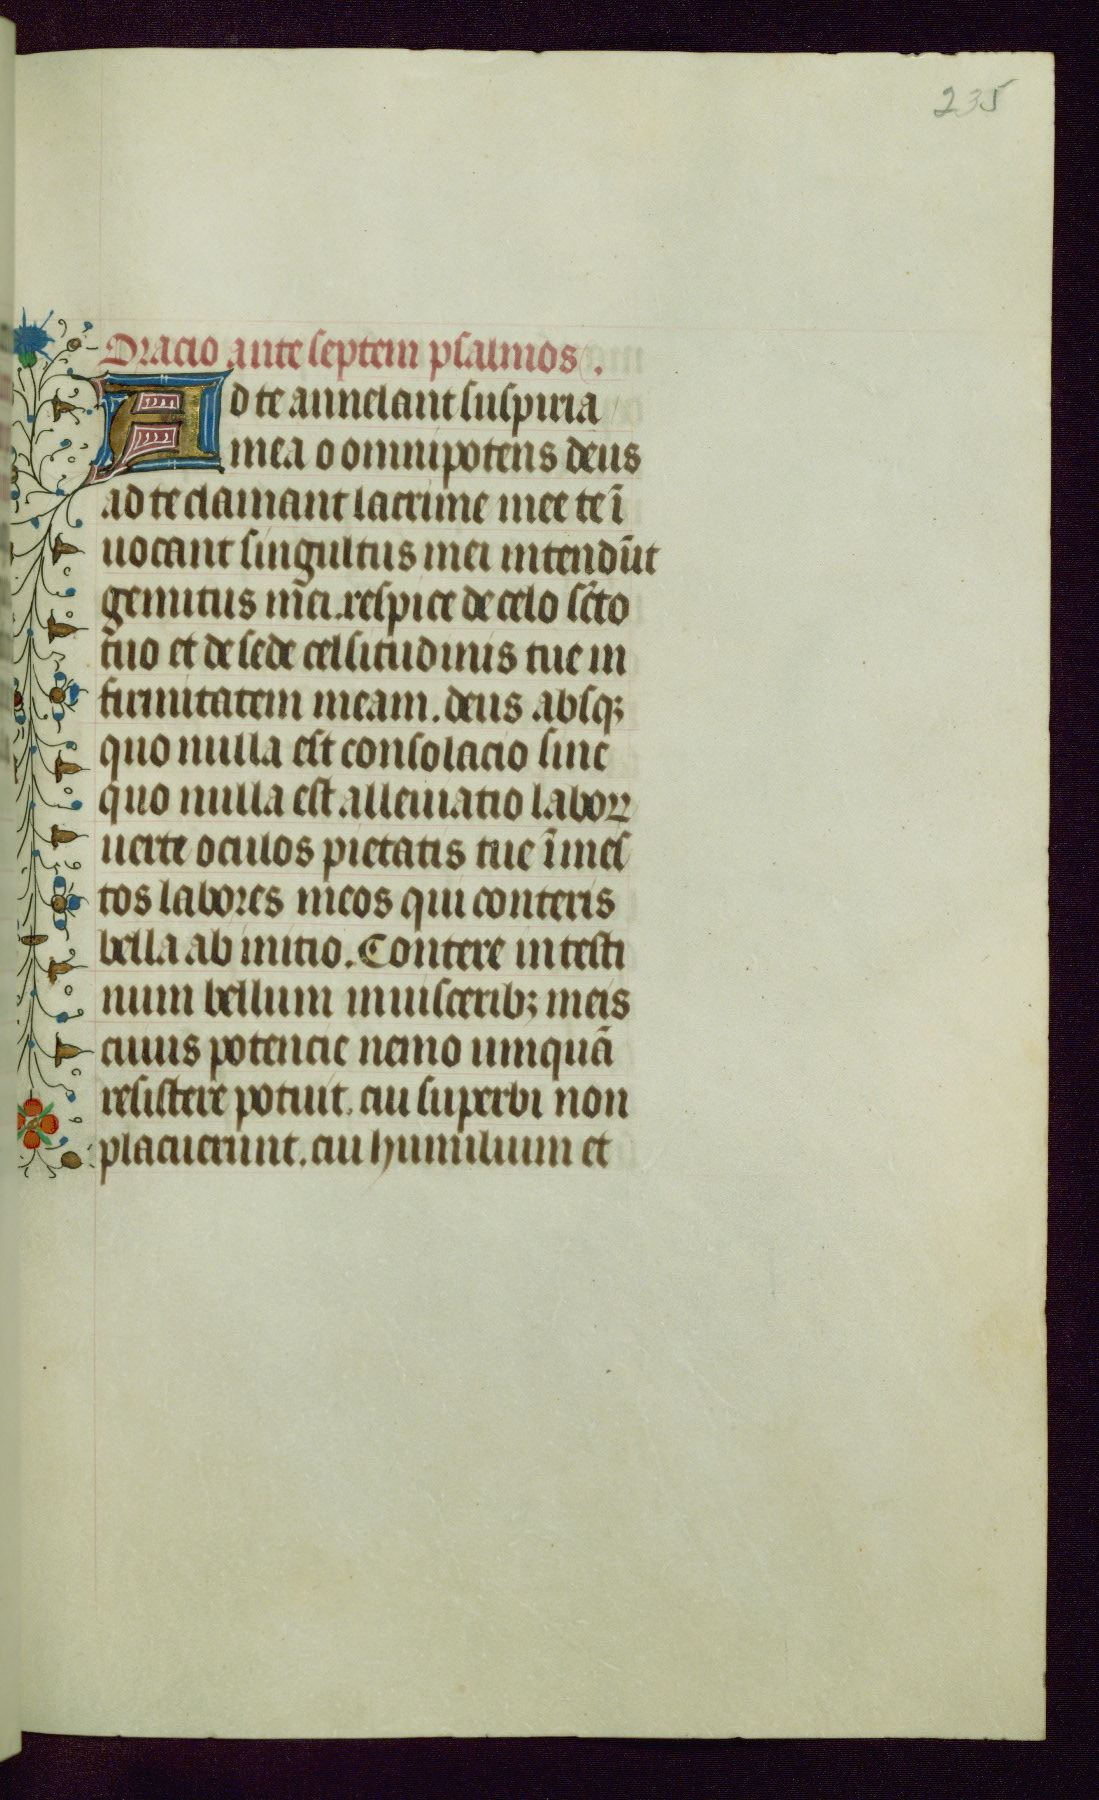 235
Oracio ante septem psalmos.
Ad te annelant suspiria
mea o omnipotens deus
ad te clamant lacrime mee te ī
uocant singultus mei intendūt
gemitus m̄ei.respice de celo sc̄to
tuo et de sede celsitudinis tue in
firmitatem meam. deus absqꝫ
quo nulla est consolacio sine
quo nulla est alleuiatio laboꝝ
uerte oculos pietatis tue ī mes
tos labores meos qui conteris
bella ab initio. Contere intesti
num bellum in uisceribꝫ meis
cuius potencie nemo umquā
resistere potuit. cui superbi non
placuerunt. cui humilium et